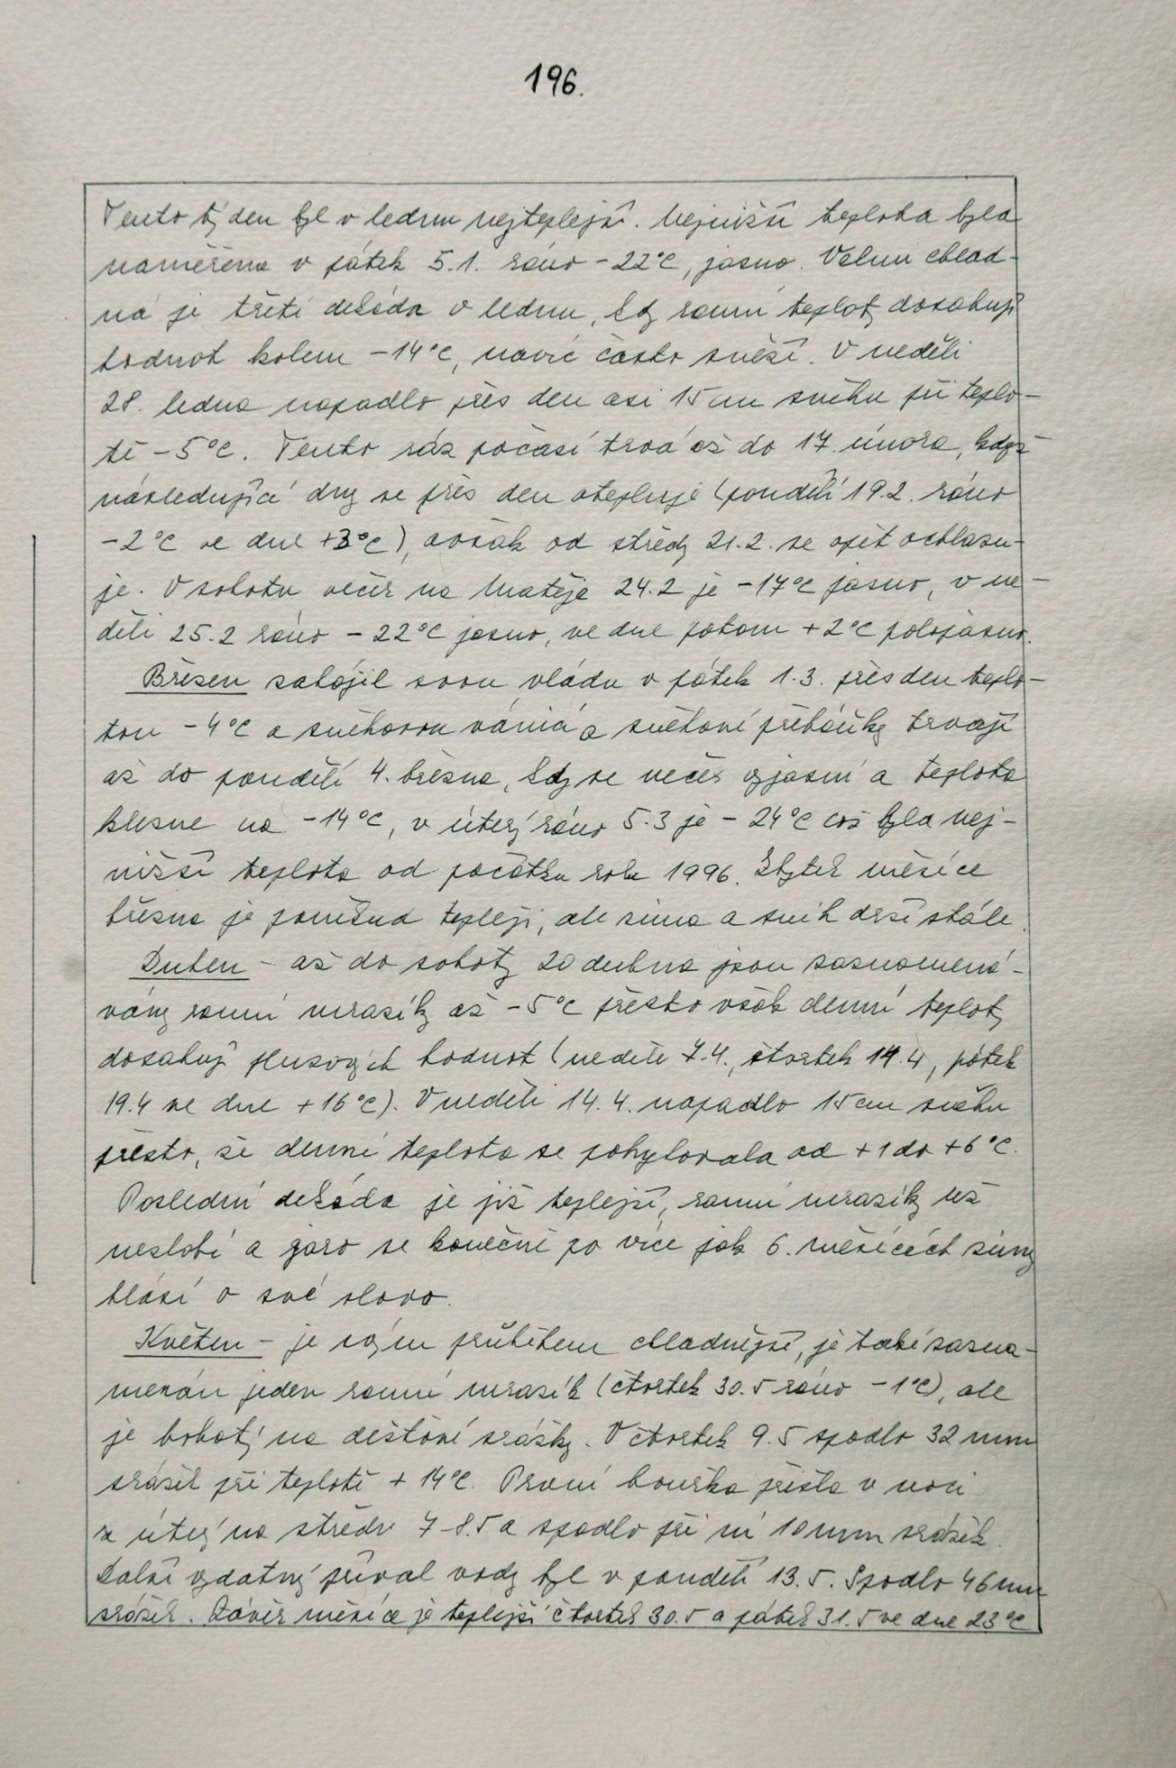 196.
Tento týden byl v lednu nejteplejší. Nejnižší teplota byla
naměřena v pátek 5.1. ráno -22°C, jasno. Velmi chlad-
ná je třetí dekáda v lednu, kdy ranní teploty dosahují
hodnot kolem -14°C, navíc často sněží. V neděli
28. ledna napadlo přes den asi 15 cm sněhu při teplo-
tě -5°C. Tento ráz počasí trvá až do 17. února, když
následující dny se přes den otepluje (pondělí 19.2. ráno
-2°C ve dne +3°C), avšak od středy 21.2. se opět ochlazu-
je. V sobotu večer na Matěje 24.2 je -17°C jasno, v ne-
děli 25.2 ráno -22°C jasno, ve dne potom +2°C polojasno.
Březen zahájil svou vládu v pátek 1.3. přes den teplo-
tou -4°C a sněhovou vánicí a sněhové přeháňky trvají
až do pondělí 4. března, kdy se večer vyjasní a teplota
klesne na -14°C, v úterý ráno 5.3 je -24°C což byla nej-
nižší teplota od počátku roku 1996. Zbytek měsíce
března je poněkud teplejší, ale zima a sníh drží stále.
Duben - až do soboty 20 dubna jsou zaznamená-
vány ranní mrazíky až -5°C přesto však denní teploty
dosahují plusových hodnot (neděle 7.4., čtvrtek 14.4, pátek
19.4 ve dne +16°C). V neděli 14.4. napadlo 15 cm sněhu
přesto, že denní teplota se pohybovala od +1 do +6°C.
Poslední dekáda je již teplejší, ranní mrazíky už
nezlobí a jaro se konečně po více jak 6. měsících zimy
hlásí o své slovo.
Květen - je svým průběhem chladnější, je také zazna-
menán jeden ranní mrazík (čtvrtek 30.5 ráno -1°C), ale
je bohatý na dešťové srážky. V čtvrtek 9.5 spadlo 32 mm
srážek při teplotě +14°C. První bouřka přišla v noci
z úterý na středu 7-8.5 a spadlo při ní 10 mm srážek.
Další vydatný příval vody byl v pondělí 13.5. Spadlo 46 mm
srážek. Závěr měsíce je teplejší čtvrtek 30.5 a pátek 31.5 ve dne 23°C